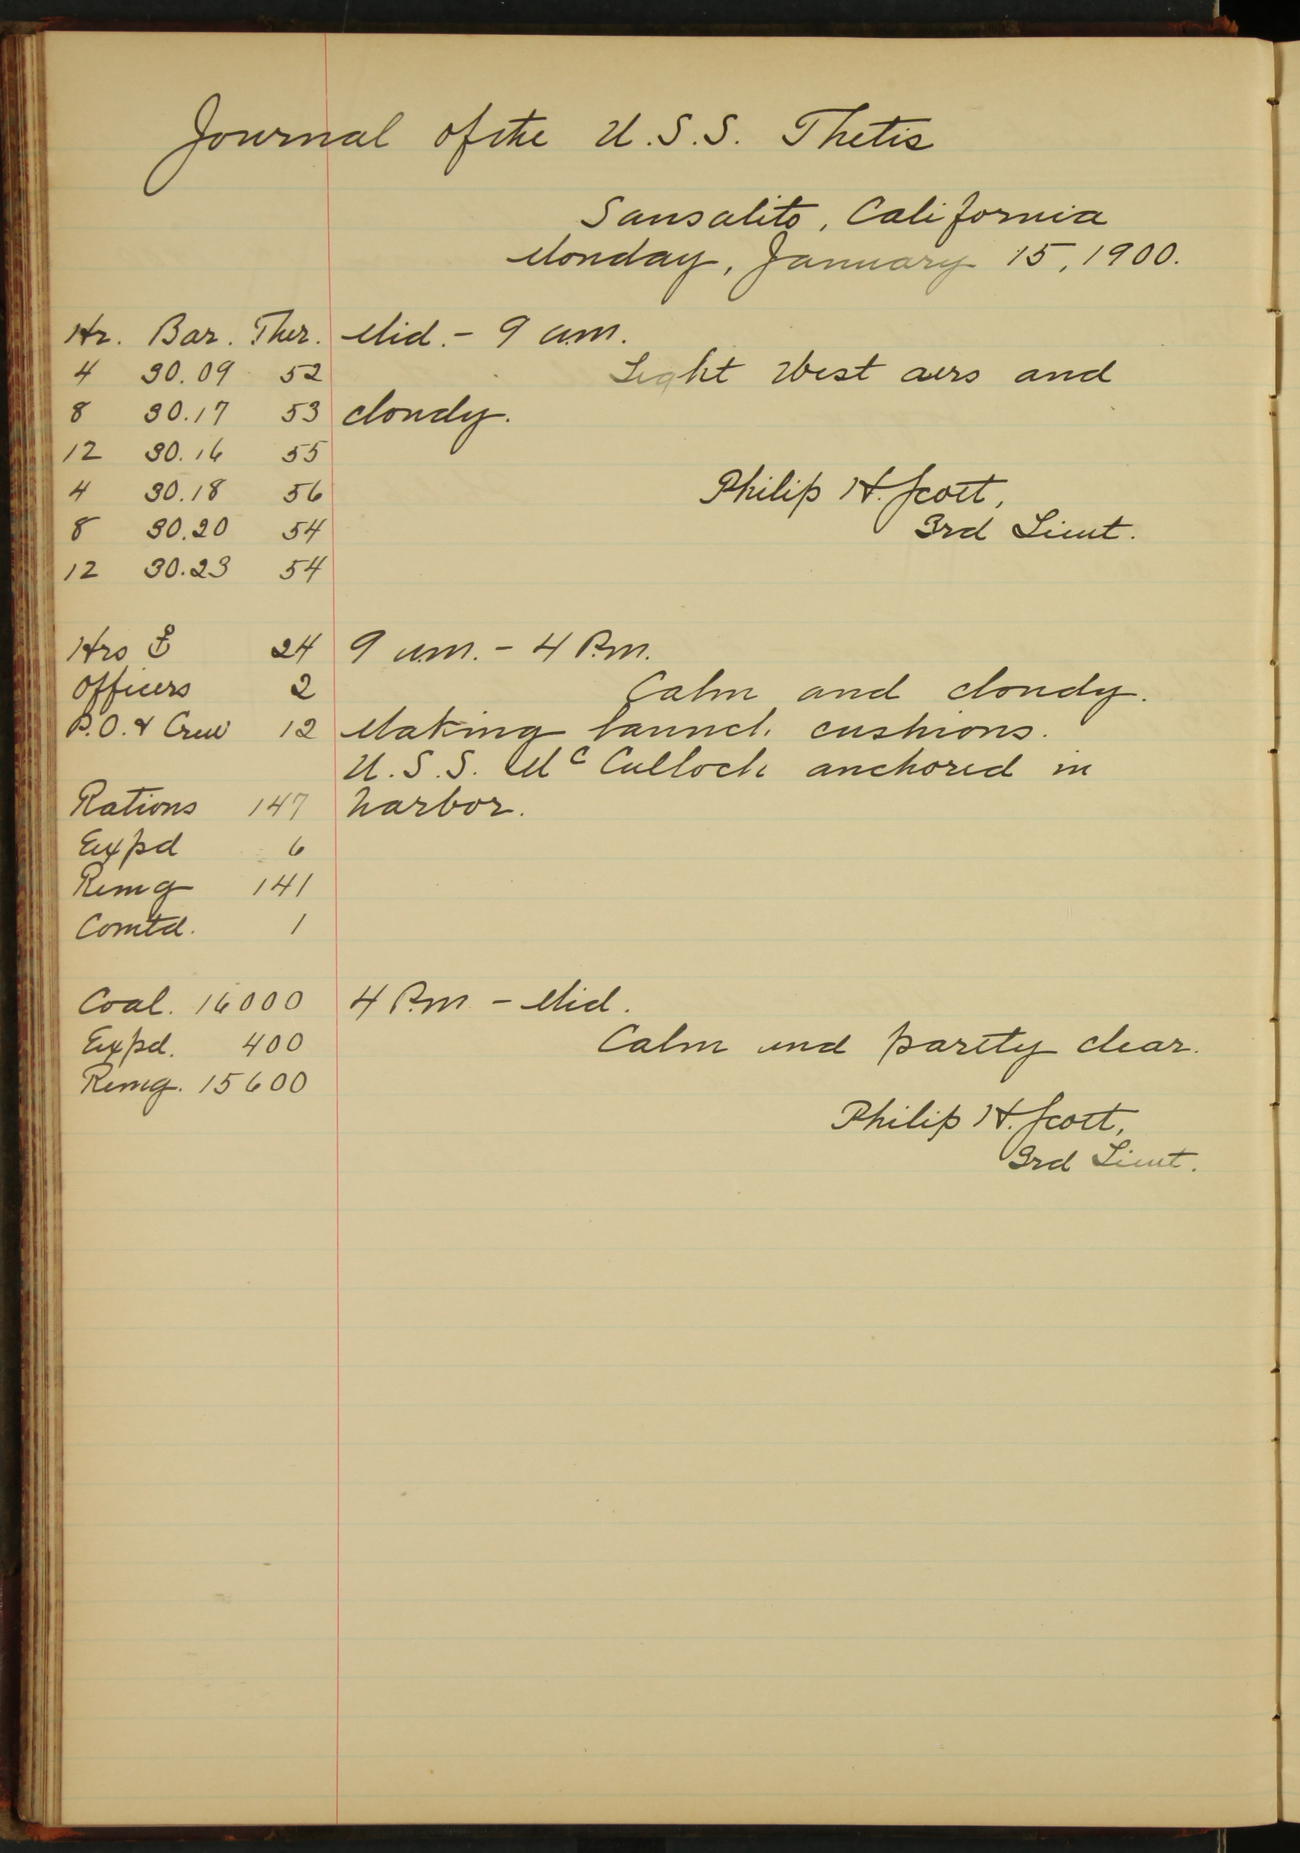 Journal of the U.S.S. Thetis
Sausalito, California
Monday, January 15, 1900.
Hr. Bar. Ther. Mid. - 9 a.m.
4 30.09 52 Light West airs and
8 30.17 53 cloudy.
12 30.16 55
4 30.18 56 Philip H. Scott,
8 30.20 54 3rd Lieut.
12 30.23 54
Hrs ⚓ 24 9 a.m. - 4 P.m.
Officers 2 Calm and cloudy.
P.O. & Crew 12 Making launch cushions.
U.S.S. McCulloch anchored in
Rations 147 harbor.
Expd 6
Remg 141
Comtd. 1
Coal. 16000 4 P.m - Mid.
Expd. 400 Calm and partly clear.
Remg. 15600
Philip H. Scott,
3rd Lieut.